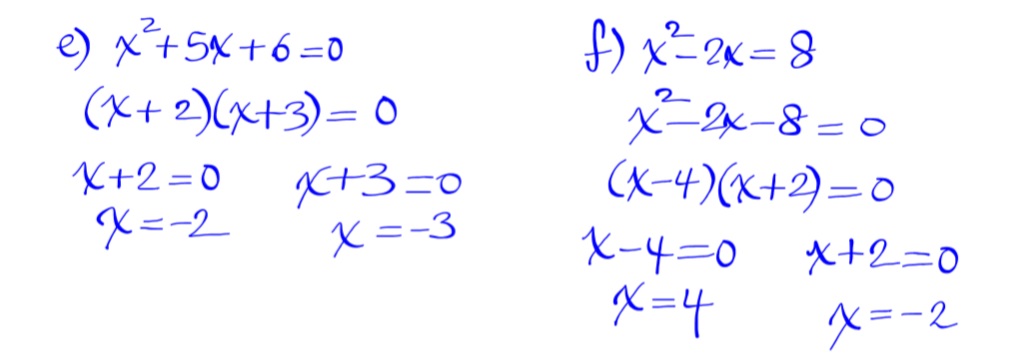 e) x²+5x+6=0
(x+2)(x+3)=0
x+2=0 x+3=0
x=-2 x=-3
f) x²-2x=8
x²-2x-8=0
(x-4)(x+2)=0
x-4=0 x+2=0
x=4 x=-2